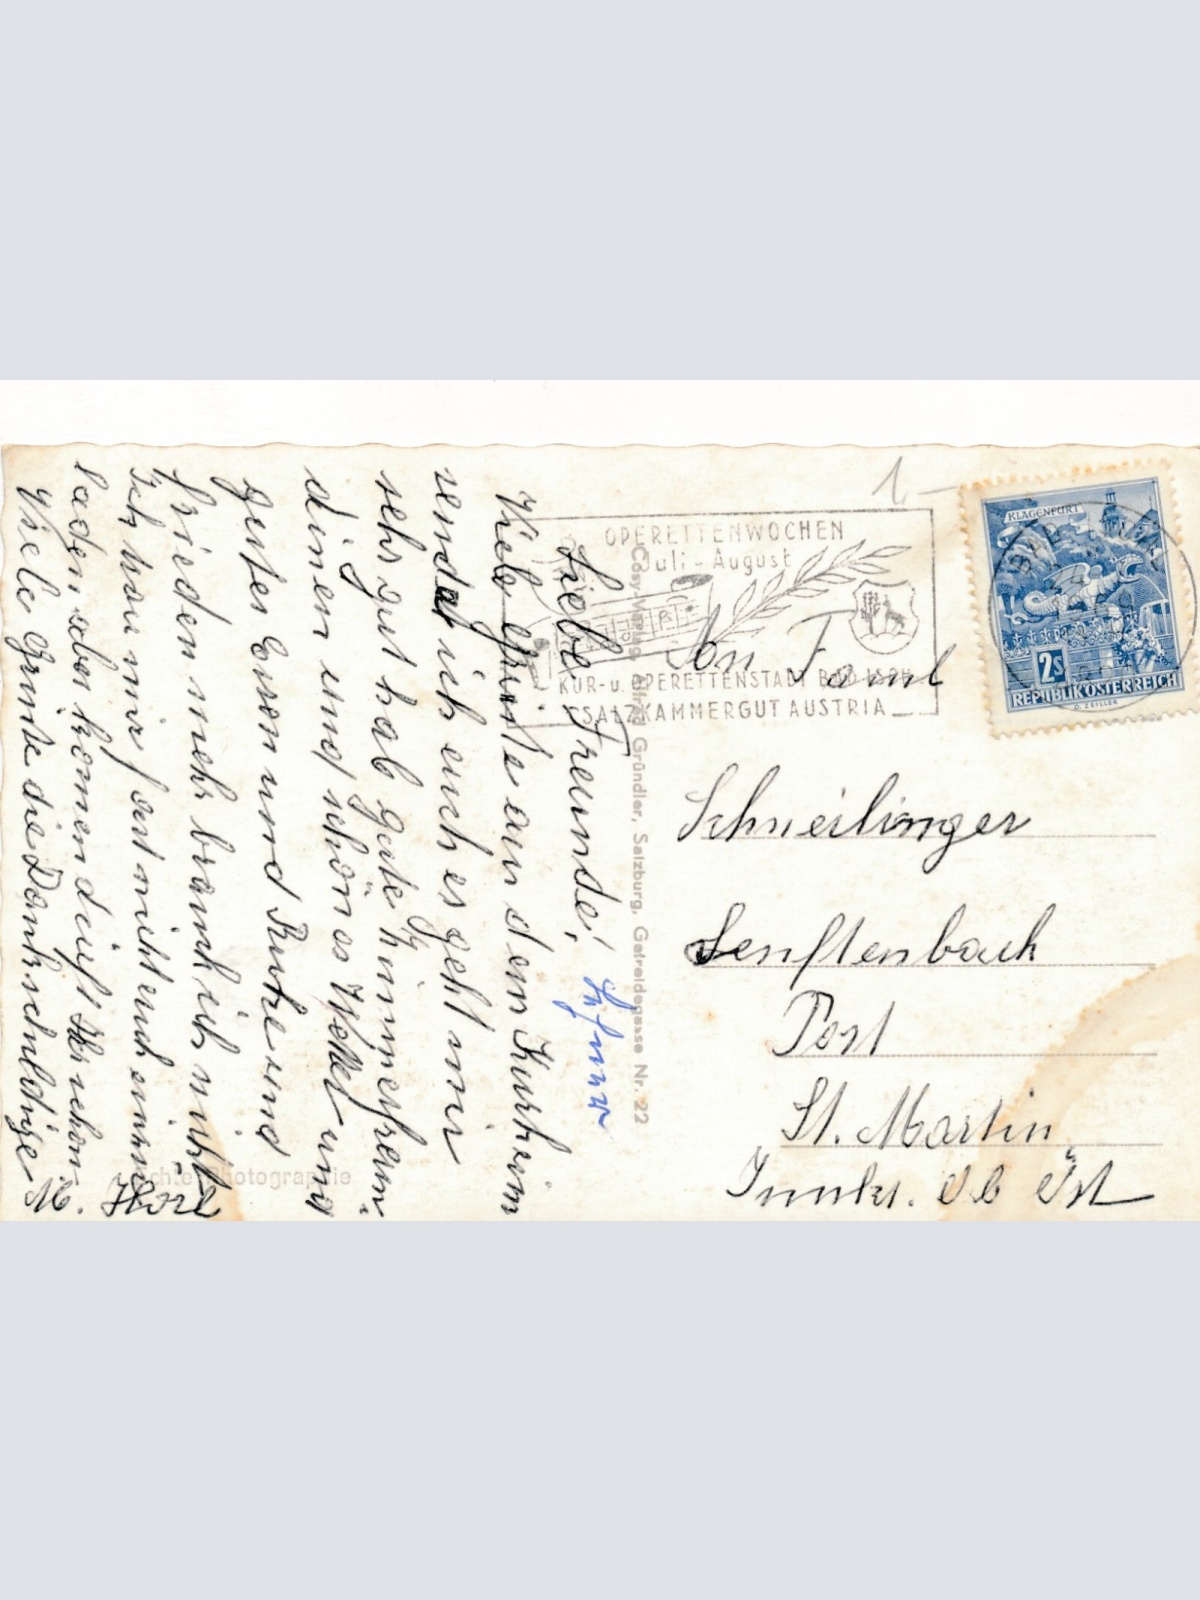 1-
OPERETTENWOCHEN
Juli - August
KUR- u. OPERETTENSTADT BAD ISCHL
SALZKAMMERGUT AUSTRIA
KLAGENFURT
2S
REPUBLIK ÖSTERREICH
An Faml
Schneilinger
Senftenbach
Post
St. Martin
Innkr. Ob Öst
Cosy-Verlag Alfred Gründler, Salzburg, Getreidegasse Nr. 22
Liebe Freunde!
Viele Grüsse aus den Kurheim
sendet ich euch es geht mir
sehr gut hab gute Zimmerfraun
dinen und schönes Wetter und
gutes Essen und Ruhe und
frieden mehr brauch ich nicht
Ich trau mir fast nicht euch einzu
laden aber komen dürft ihr schon
Viele Grüsse die Dankschuldige
M.
Echte Photographie